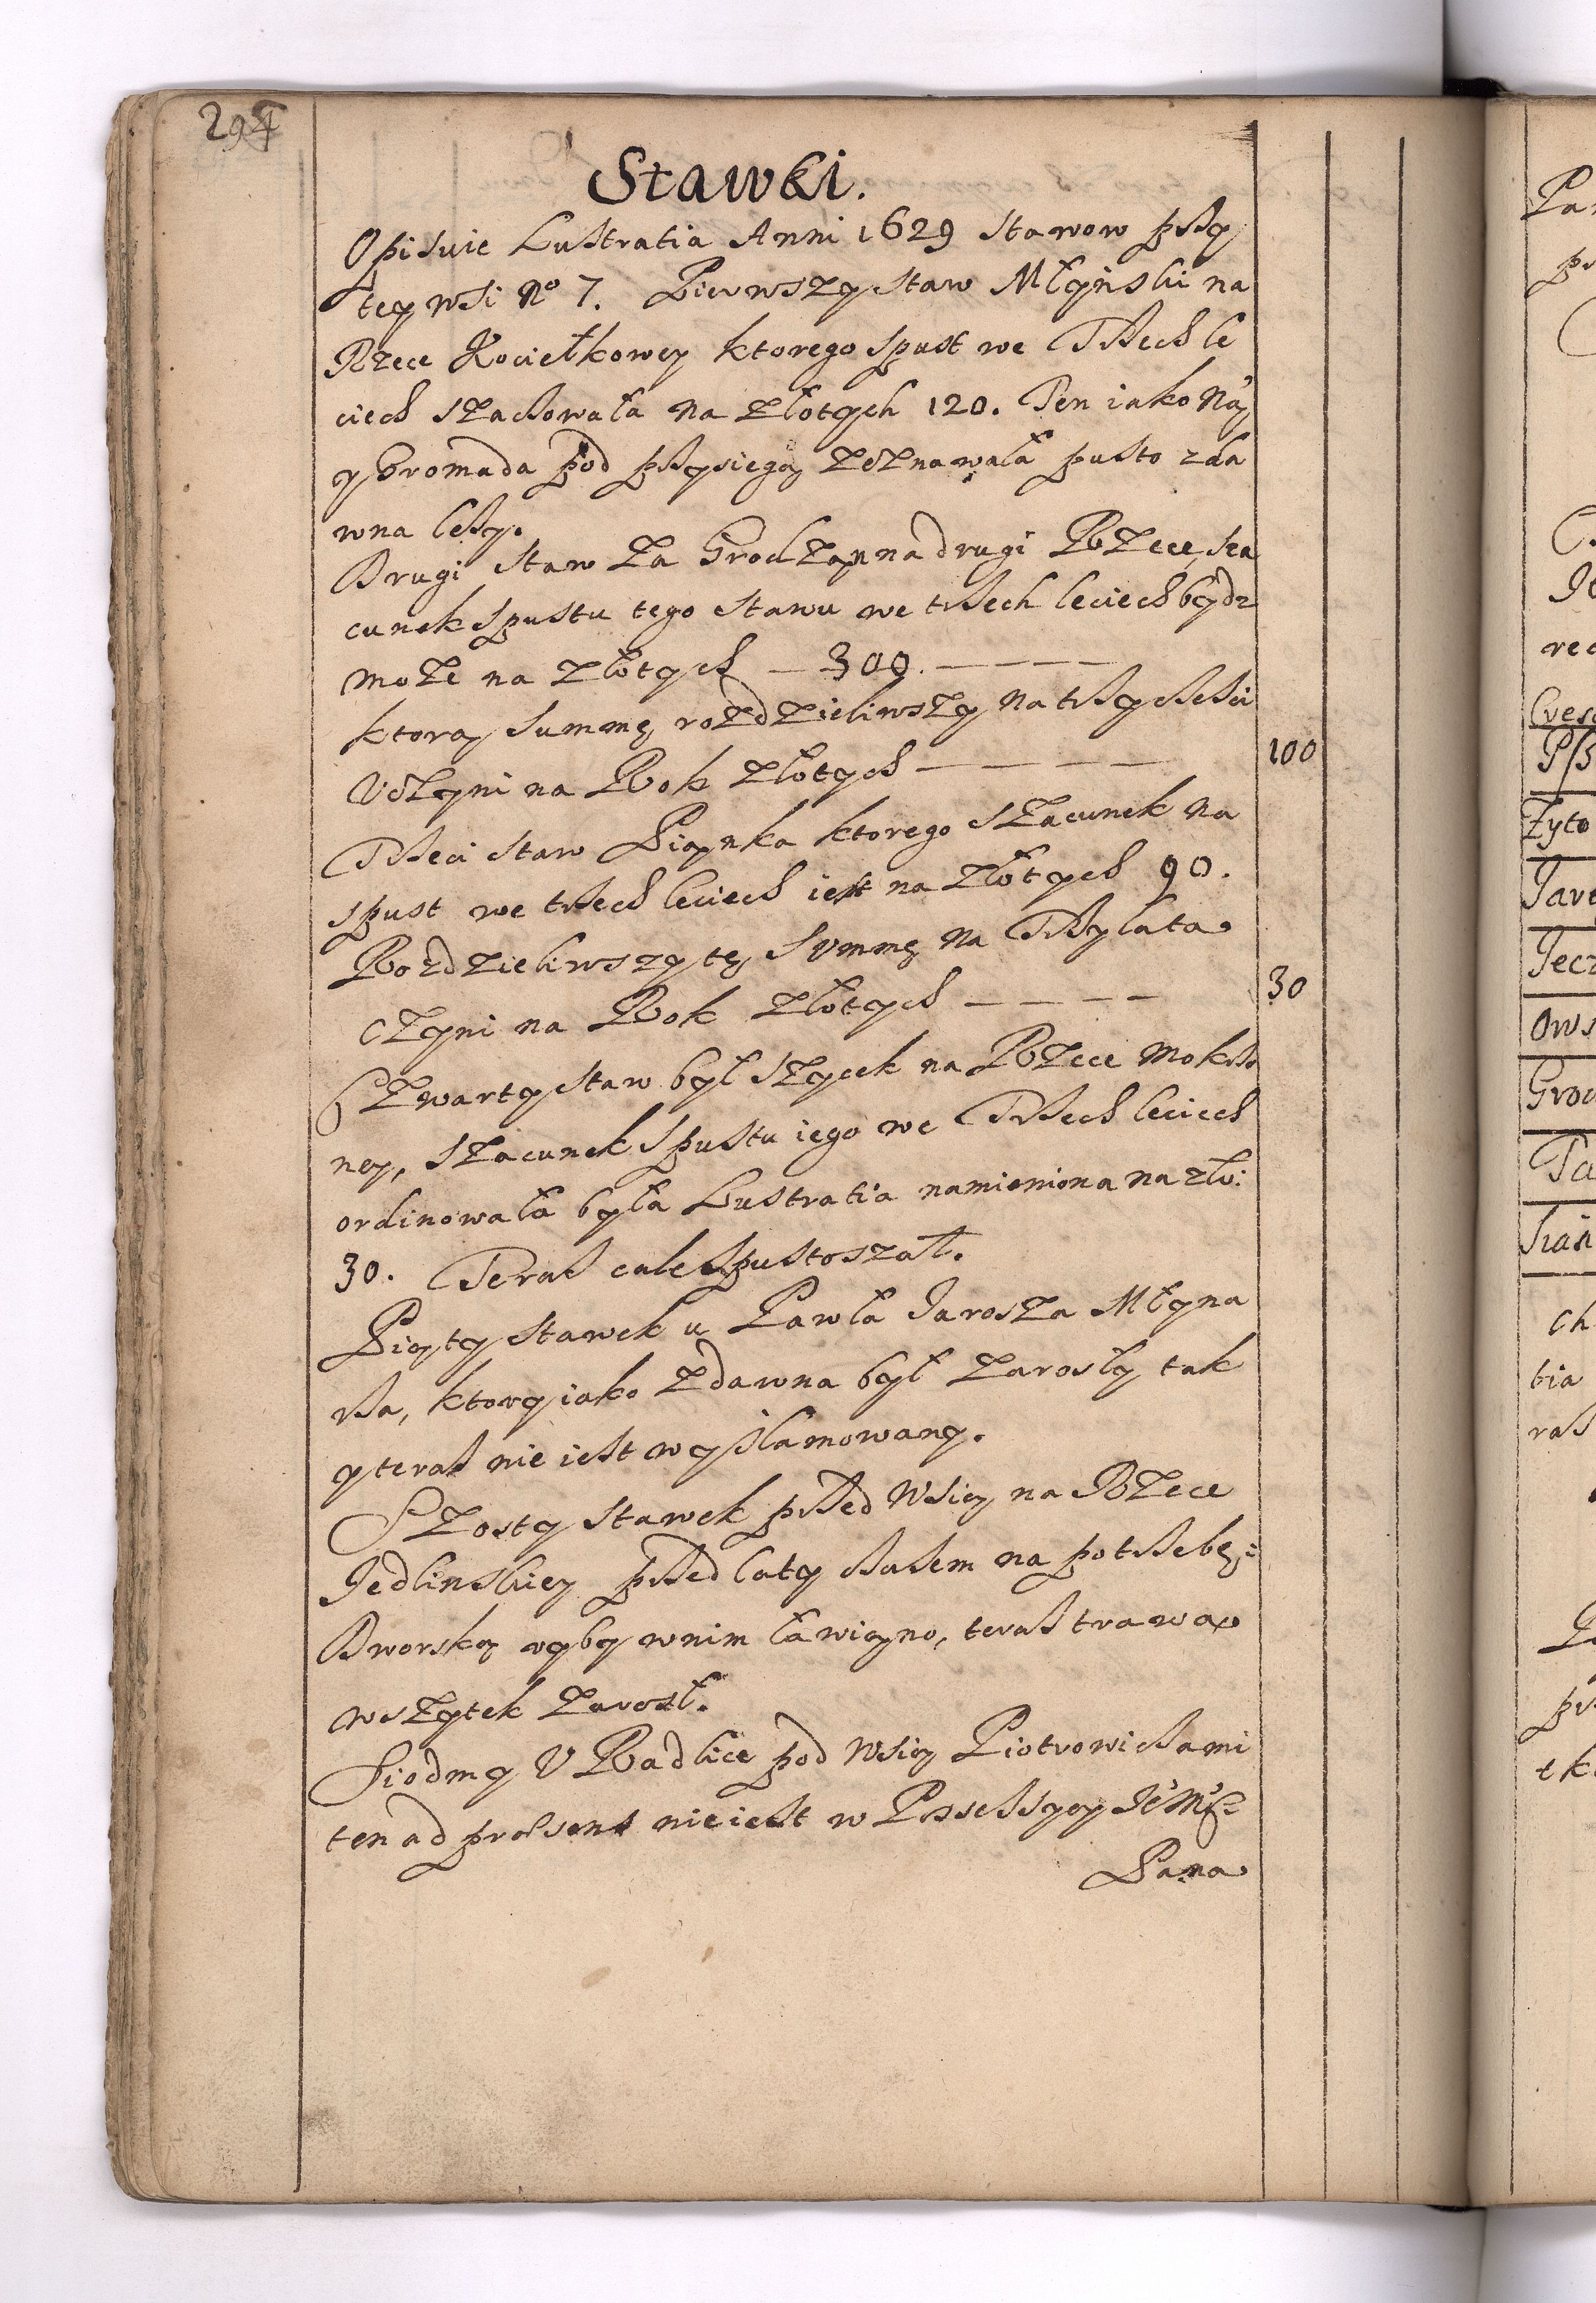 294
Stawki.
Opisuie Lustratia Anni 1629 Stawow przy
tey wsi No 7. Pierwszy Staw Młynski na
Rzece Kociełkowey ktorego Spust we Trzech le
ciech szacowała na złotych 120. Ten iako
y Gromada pod przysięgą zeznawała pusto zda
wna leży.
Drugi Staw za Grodzą na drugi Rzece, sza
cunek Spustu tego Stawu we trzech leciech bydz
może na złotych — 300. — — — —
ktorą Summę rozdzieliwszy na trzy części
Uczyni na Rok złotych — — — — 100
Trzeci Staw Pianka ktorego szacunek na
spust we trzech leciech iest na złotych 90.
Rozdzieliwszy tę Summę na Trzy lata
czyni na Rok złotych — — — — 30
Czwarty Staw był Szycek na Rzece Mokrz
ney, szacunek Spustu iego we Trzech leciech
ordinowała była Lustratia namieniona na zło:
30. Teraz cale spustoszał.
Piąty Stawek u Pawła Jarosza Młyna
rza, ktory iako zdawna był zarosły tak
y teraz nie iest wyszlamowany.
Szosty Stawek przed Wsią na Rzece
Jedlinskiey przed laty czasem na potrzebę
Dworską ryby wnim ławiano, teraz trawą
wszytek zarosł.
Siodmy U Radlice pod Wsią Piotrowiczami
ten ad praesens nie iest w Possessyey
Pana